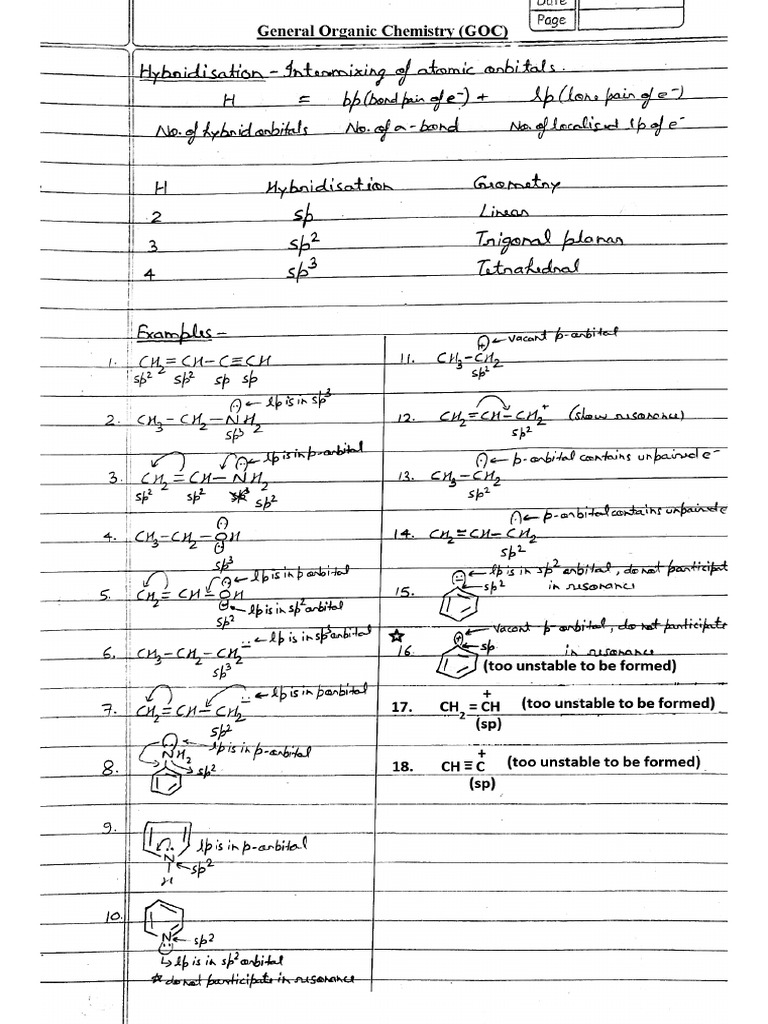 Date
Page
General Organic Chemistry (GOC)
Hybridisation - Intermixing of atomic orbitals.
H = bp (bond pair of e⁻) + lp (lone pair of e⁻)
No. of hybrid orbitals No. of σ-bond No. of localised lp of e⁻
H Hybridisation Geometry
2 sp Linear
3 sp² Trigonal planar
4 sp³ Tetrahedral
Examples -
1. CH₂=CH-C≡CH
sp² sp² sp sp
← lp is in sp³
2. CH₃-CH₂-NH₂
sp³
← lp is in p-orbital
3. CH₂=CH-NH₂
sp² sp² sp³ sp²
4. CH₃-CH₂-OH
sp³
← lp is in p orbital
5. CH₂=CH-OH
← lp is in sp² orbital
sp²
← lp is in sp³ orbital
6. CH₃-CH₂-CH₂
sp³
← lp is in p orbital
7. CH₂=CH-CH₂
sp²
← lp is in p-orbital
8. NH₂
sp²
9.
lp is in p-orbital
N ← sp²
H
10.
N ← sp²
↳ lp is in sp² orbital
☆ do not participate in resonance
+ ← vacant p-orbital
11. CH₃-CH₂
sp²
12. CH₂=CH-CH₂⁺ (show resonance)
sp²
← p-orbital contains unpaired e⁻
13. CH₃-CH₂
sp²
← p-orbital contains unpaired e
14. CH₂=CH-CH₂
sp²
← lp is in sp² orbital, do not participat
15. sp² in resonance
☆ + ← vacant p-orbital, do not participate
16. sp in resonance
(too unstable to be formed)
17. CH₂ = CH⁺ (too unstable to be formed)
(sp)
18. CH ≡ C⁺ (too unstable to be formed)
(sp)